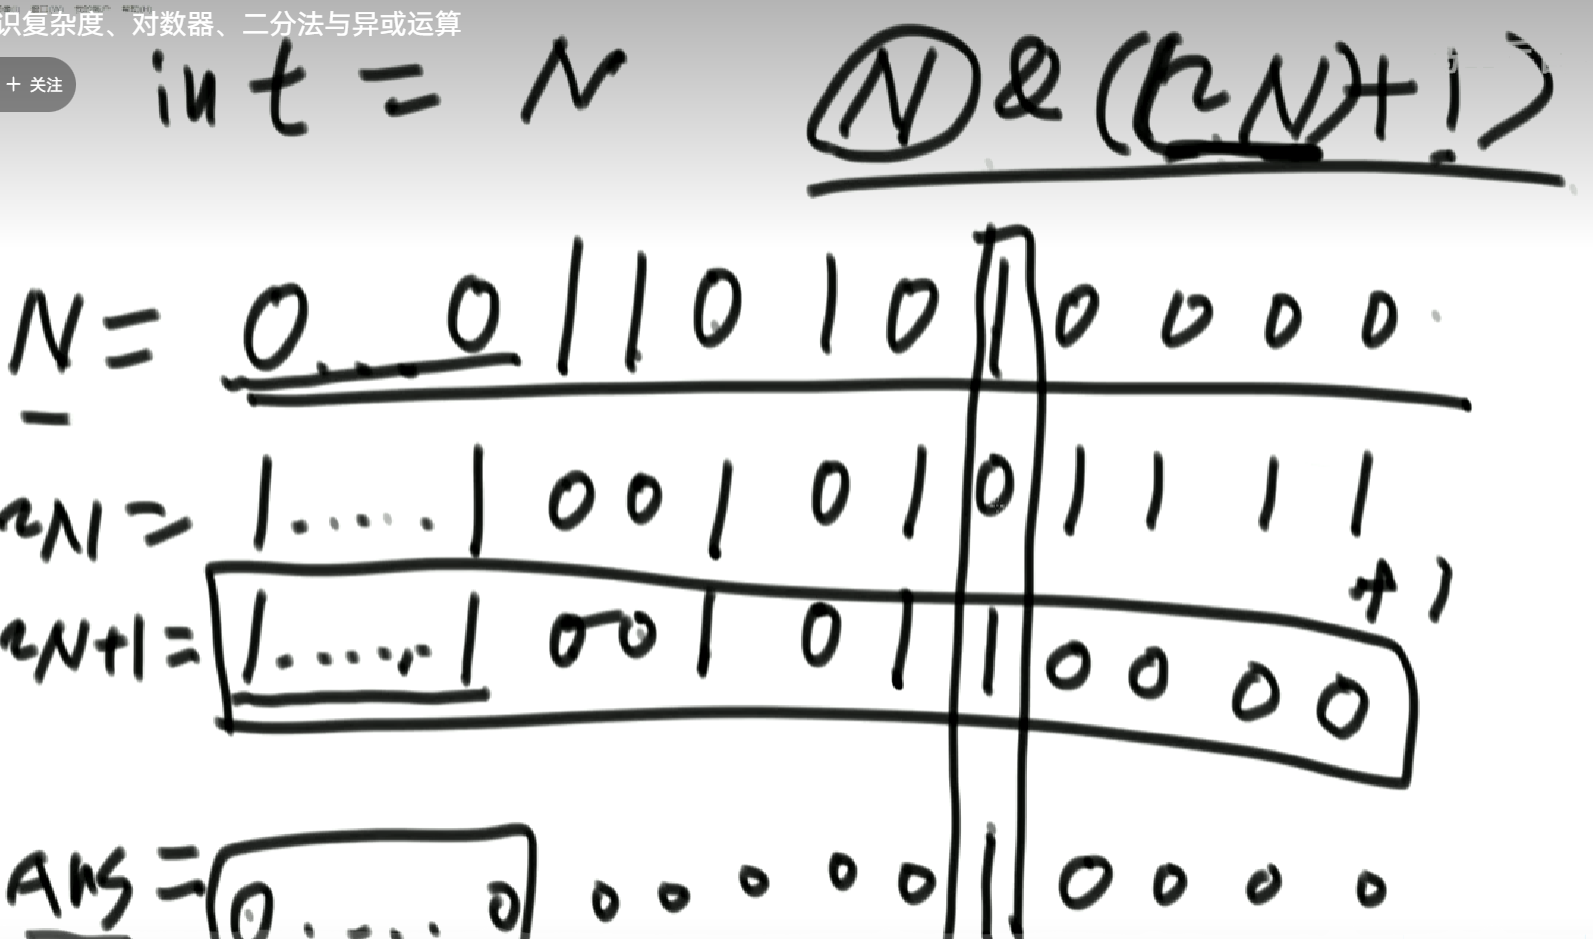 识复杂度、对数器、二分法与异或运算
+ 关注
int = N N & ((~N)+1)
N = 0...0 1 1 0 1 0 1 0 0 0 0
~N = 1.....1 0 0 1 0 1 0 1 1 1 1
+1
~N+1 = 1.....1 0 0 1 0 1 1 0 0 0 0
Ans = 0....0 0 0 0 0 0 1 0 0 0 0